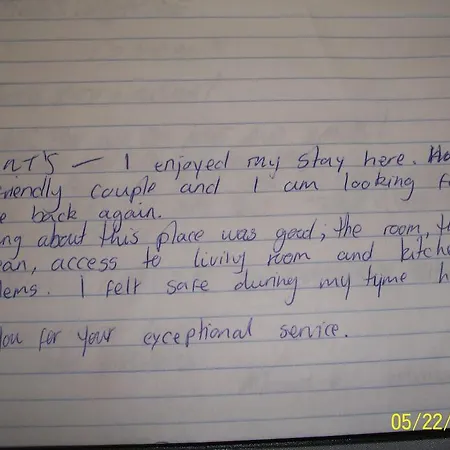 nts — I enjoyed my stay here. He
friendly couple and I am looking fo
e back again.
ng about this place was good; the room, th
ean, access to living room and kitche
lems. I felt safe during my tyme h
you for your exceptional service.
05/22/